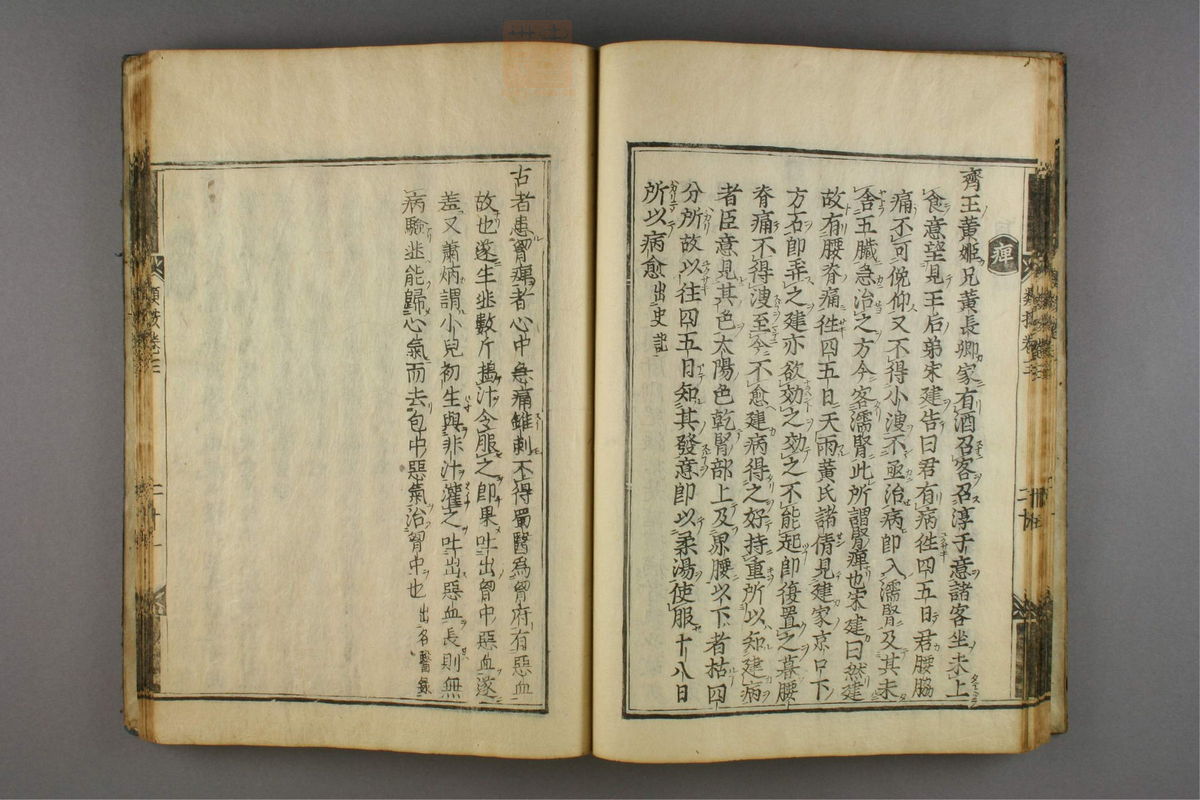 痺
齊王黃姬兄黃長卿家有酒召客召淳于意諸客坐未上
食意望見王后弟宋建告曰君有病徃四五日君腰脇
痛不可俛仰又不得小溲不亟治病即入濡腎及其未
舍五臟急治之方今客濡腎此所謂腎痺也宋建曰然建
故有腰脊痛徃四五日天雨黃氏諸倩見建家京口下
方石即弄之建亦欲効之効之不能起即復置之暮腰
脊痛不得溲至今不愈建病得之好持重所以知建病
者臣意見其色太陽色乾腎部上及界腰以下者枯四
分所故以往四五日知其發意即以柔湯使服十八日
所以病愈 出史記
古者患胷痺者心中急痛錐刺不得蜀醫為胷府有惡血
故也遂生韭數斤搗汁令服之即果吐出胷中惡血遂
羞又蕭炳謂小兒初生與韭汁灌之吐出惡血長則無
病驗韭能歸心氣而去包中惡氣治胷中也 出名醫錄
二十一